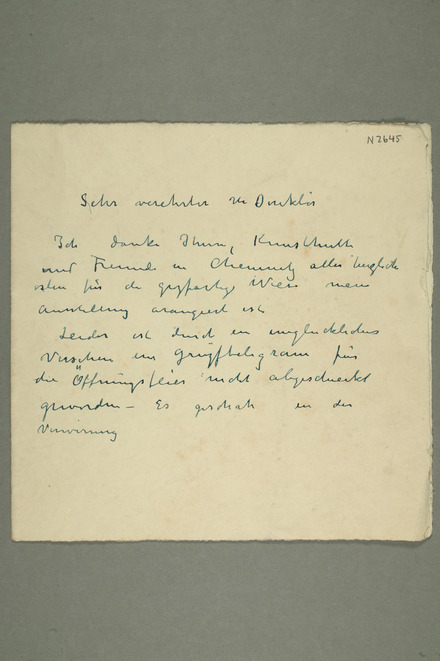 N 2645
Sehr verehrter Hr Direktør
Ich danke Ihnen, Kunsthütte
und Freunde in Chemnitz aller herzlich
sten für die großartige Weise mein
ausstellung arangiert ist
Leider ist durch ein unglückliches
Versehen ein Grußtelegram für
die Öffnungsfeier nicht abgeschickt
geworden – Es geschah in der
Verwirrung